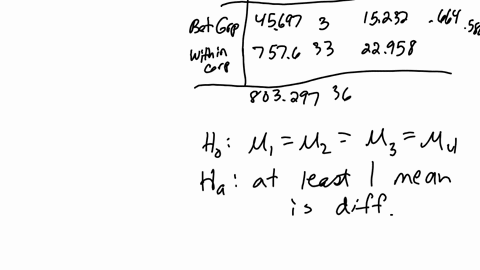 Bet Grp 45.697 3 15.232 .664
Within Grp 757.6 33 22.958
803.297 36
H₀: μ₁ = μ₂ = μ₃ = μ₄
Hₐ: at least 1 mean
is diff.